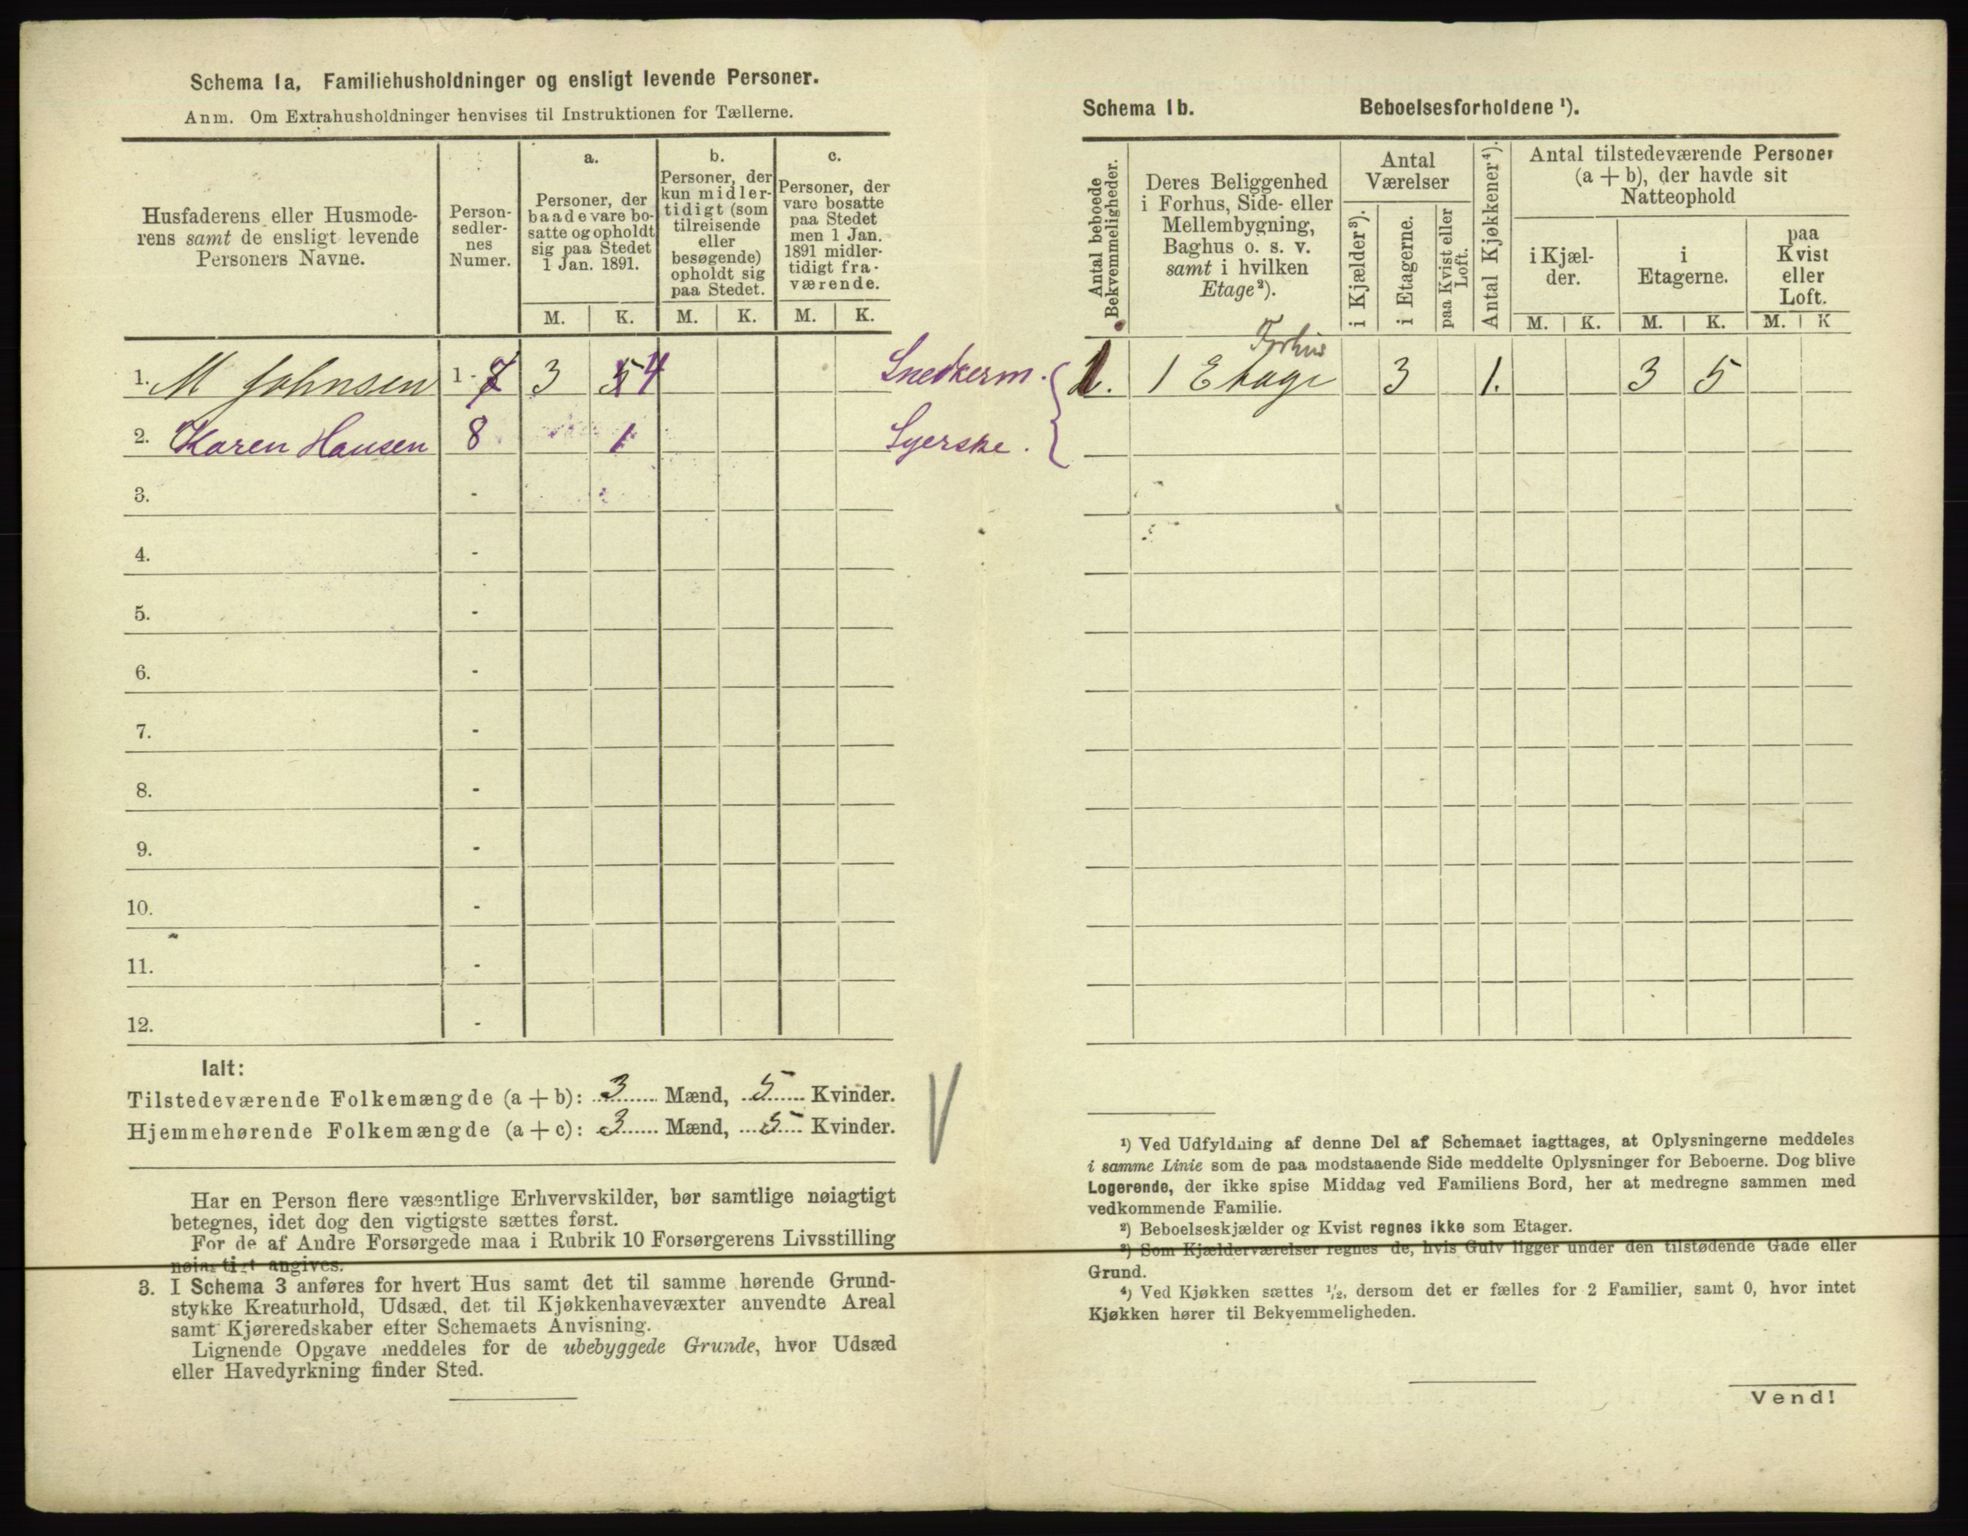 Schema 1a, Familiehusholdninger og ensligt levende Personer.
Anm. Om Extrahusholdninger henvises til Instruktionen for Tællerne.
Husfaderens eller Husmode-
rens samt de ensligt levende
Personers Navne.
Person-
sedler-
nes
Numer.
a.
Personer, der
baade vare bo-
satte og opholdt
sig paa Stedet
1 Jan. 1891.
b.
Personer, der
kun midler-
tidigt (som
tilreisende
eller
besøgende)
opholdt sig
paa Stedet.
c.
Personer, der
vare bosatte
paa Stedet
men 1 Jan.
1891 midler-
tidigt fra-
værende.
M. K. M. K. M. K.
1. M Johnsen 1-7 3 5 4 Snedkerm.
2. Karen Hansen 8 1 Syerske.
3. -
4. -
5. -
6. -
7. -
8. -
9. -
10. -
11. -
12. -
Ialt:
Tilstedeværende Folkemængde (a+b): 3 Mænd, 5 Kvinder.
Hjemmehørende Folkemængde (a+c): 3 Mænd, 5 Kvinder.
Har en Person flere væsentlige Erhvervskilder, bør samtlige nøiagtigt
betegnes, idet dog den vigtigste sættes først.
For de af Andre Forsørgede maa i Rubrik 10 Forsørgerens Livsstilling
nøiagtigt angives.
3. I Schema 3 anføres for hvert Hus samt det til samme hørende Grund-
stykke Kreaturhold, Udsæd, det til Kjøkkenhavevæxter anvendte Areal
samt Kjøreredskaber efter Schemaets Anvisning.
Lignende Opgave meddeles for de ubebyggede Grunde, hvor Udsæd
eller Havedyrkning finder Sted.
Schema 1b. Beboelsesforholdene ¹).
Antal beboede
Bekvemmeligheder.
Deres Beliggenhed
i Forhus, Side- eller
Mellembygning,
Baghus o. s. v.
samt i hvilken
Etage²).
Antal
Værelser
i Kjælder³).
i Etagerne.
paa Kvist eller
Loft.
Antal Kjøkkener⁴).
Antal tilstedeværende Personer
(a + b), der havde sit
Natteophold
i Kjæl-
der.
i
Etagerne.
paa
Kvist
eller
Loft.
M. K. M. K. M. K
Forhus
1. 1 Etage 3 1. 3 5
¹) Ved Udfyldning af denne Del af Schemaet iagttages, at Oplysningerne meddeles
i samme Linie som de paa modstaaende Side meddelte Oplysninger for Beboerne. Dog blive
Logerende, der ikke spise Middag ved Familiens Bord, her at medregne sammen med
vedkommende Familie.
²) Beboelseskjælder og Kvist regnes ikke som Etager.
³) Som Kjælderværelser regnes de, hvis Gulv ligger under den tilstødende Gade eller
Grund.
⁴) Ved Kjøkken sættes ¹/₂, dersom det er fælles for 2 Familier, samt 0, hvor intet
Kjøkken hører til Bekvemmeligheden.
Vend!